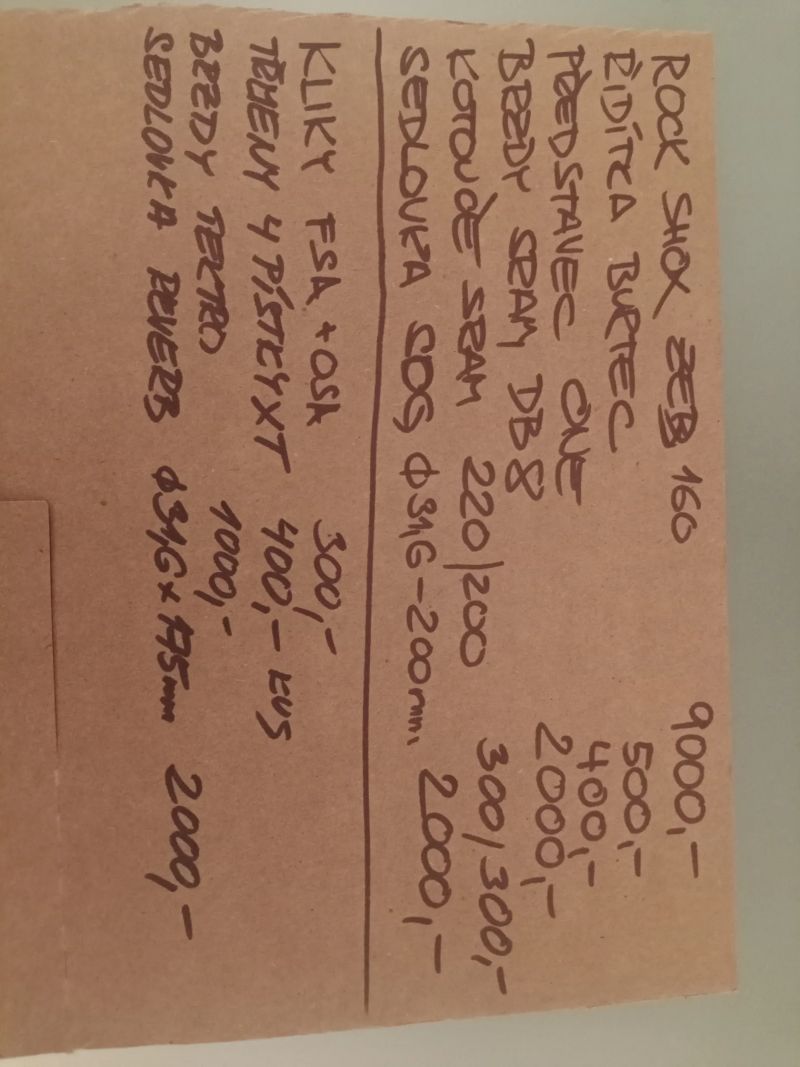 ROCK SHOX ZEB 160 9000,-
ŘIDÍTKA BURTEC 500,-
PŘEDSTAVEC ONE 400,-
BRZDY SRAM DB8 2000,-
KOTOUČE SRAM 220/200 300/300,-
SEDLOVKA SDG ϕ31,6-200mm. 2000,-
KLIKY FSA + OSA 300,-
TŘMENY 4 PÍSTKY XT 400,- KUS
BRZDY TEKTRO 1000,-
SEDLOVKA REVERB ϕ31,6 x 175mm 2000,-